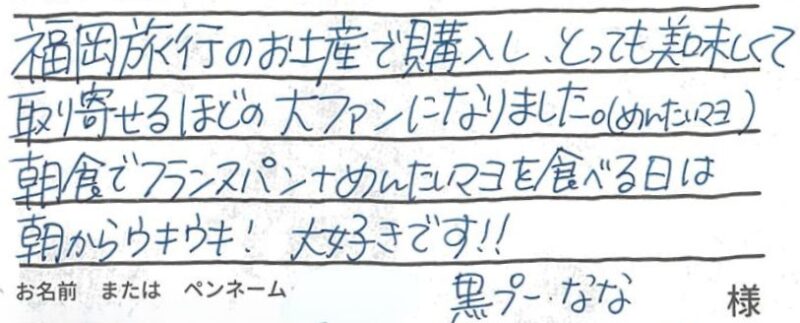 福岡旅行のお土産で購入し、とっても美味しくて
取り寄せるほどの大ファンになりました。(めんたいマヨ)
朝食でフランスパン+めんたいマヨを食べる日は
朝からウキウキ! 大好きです!!
お名前 または ペンネーム 黒プー・なな 様